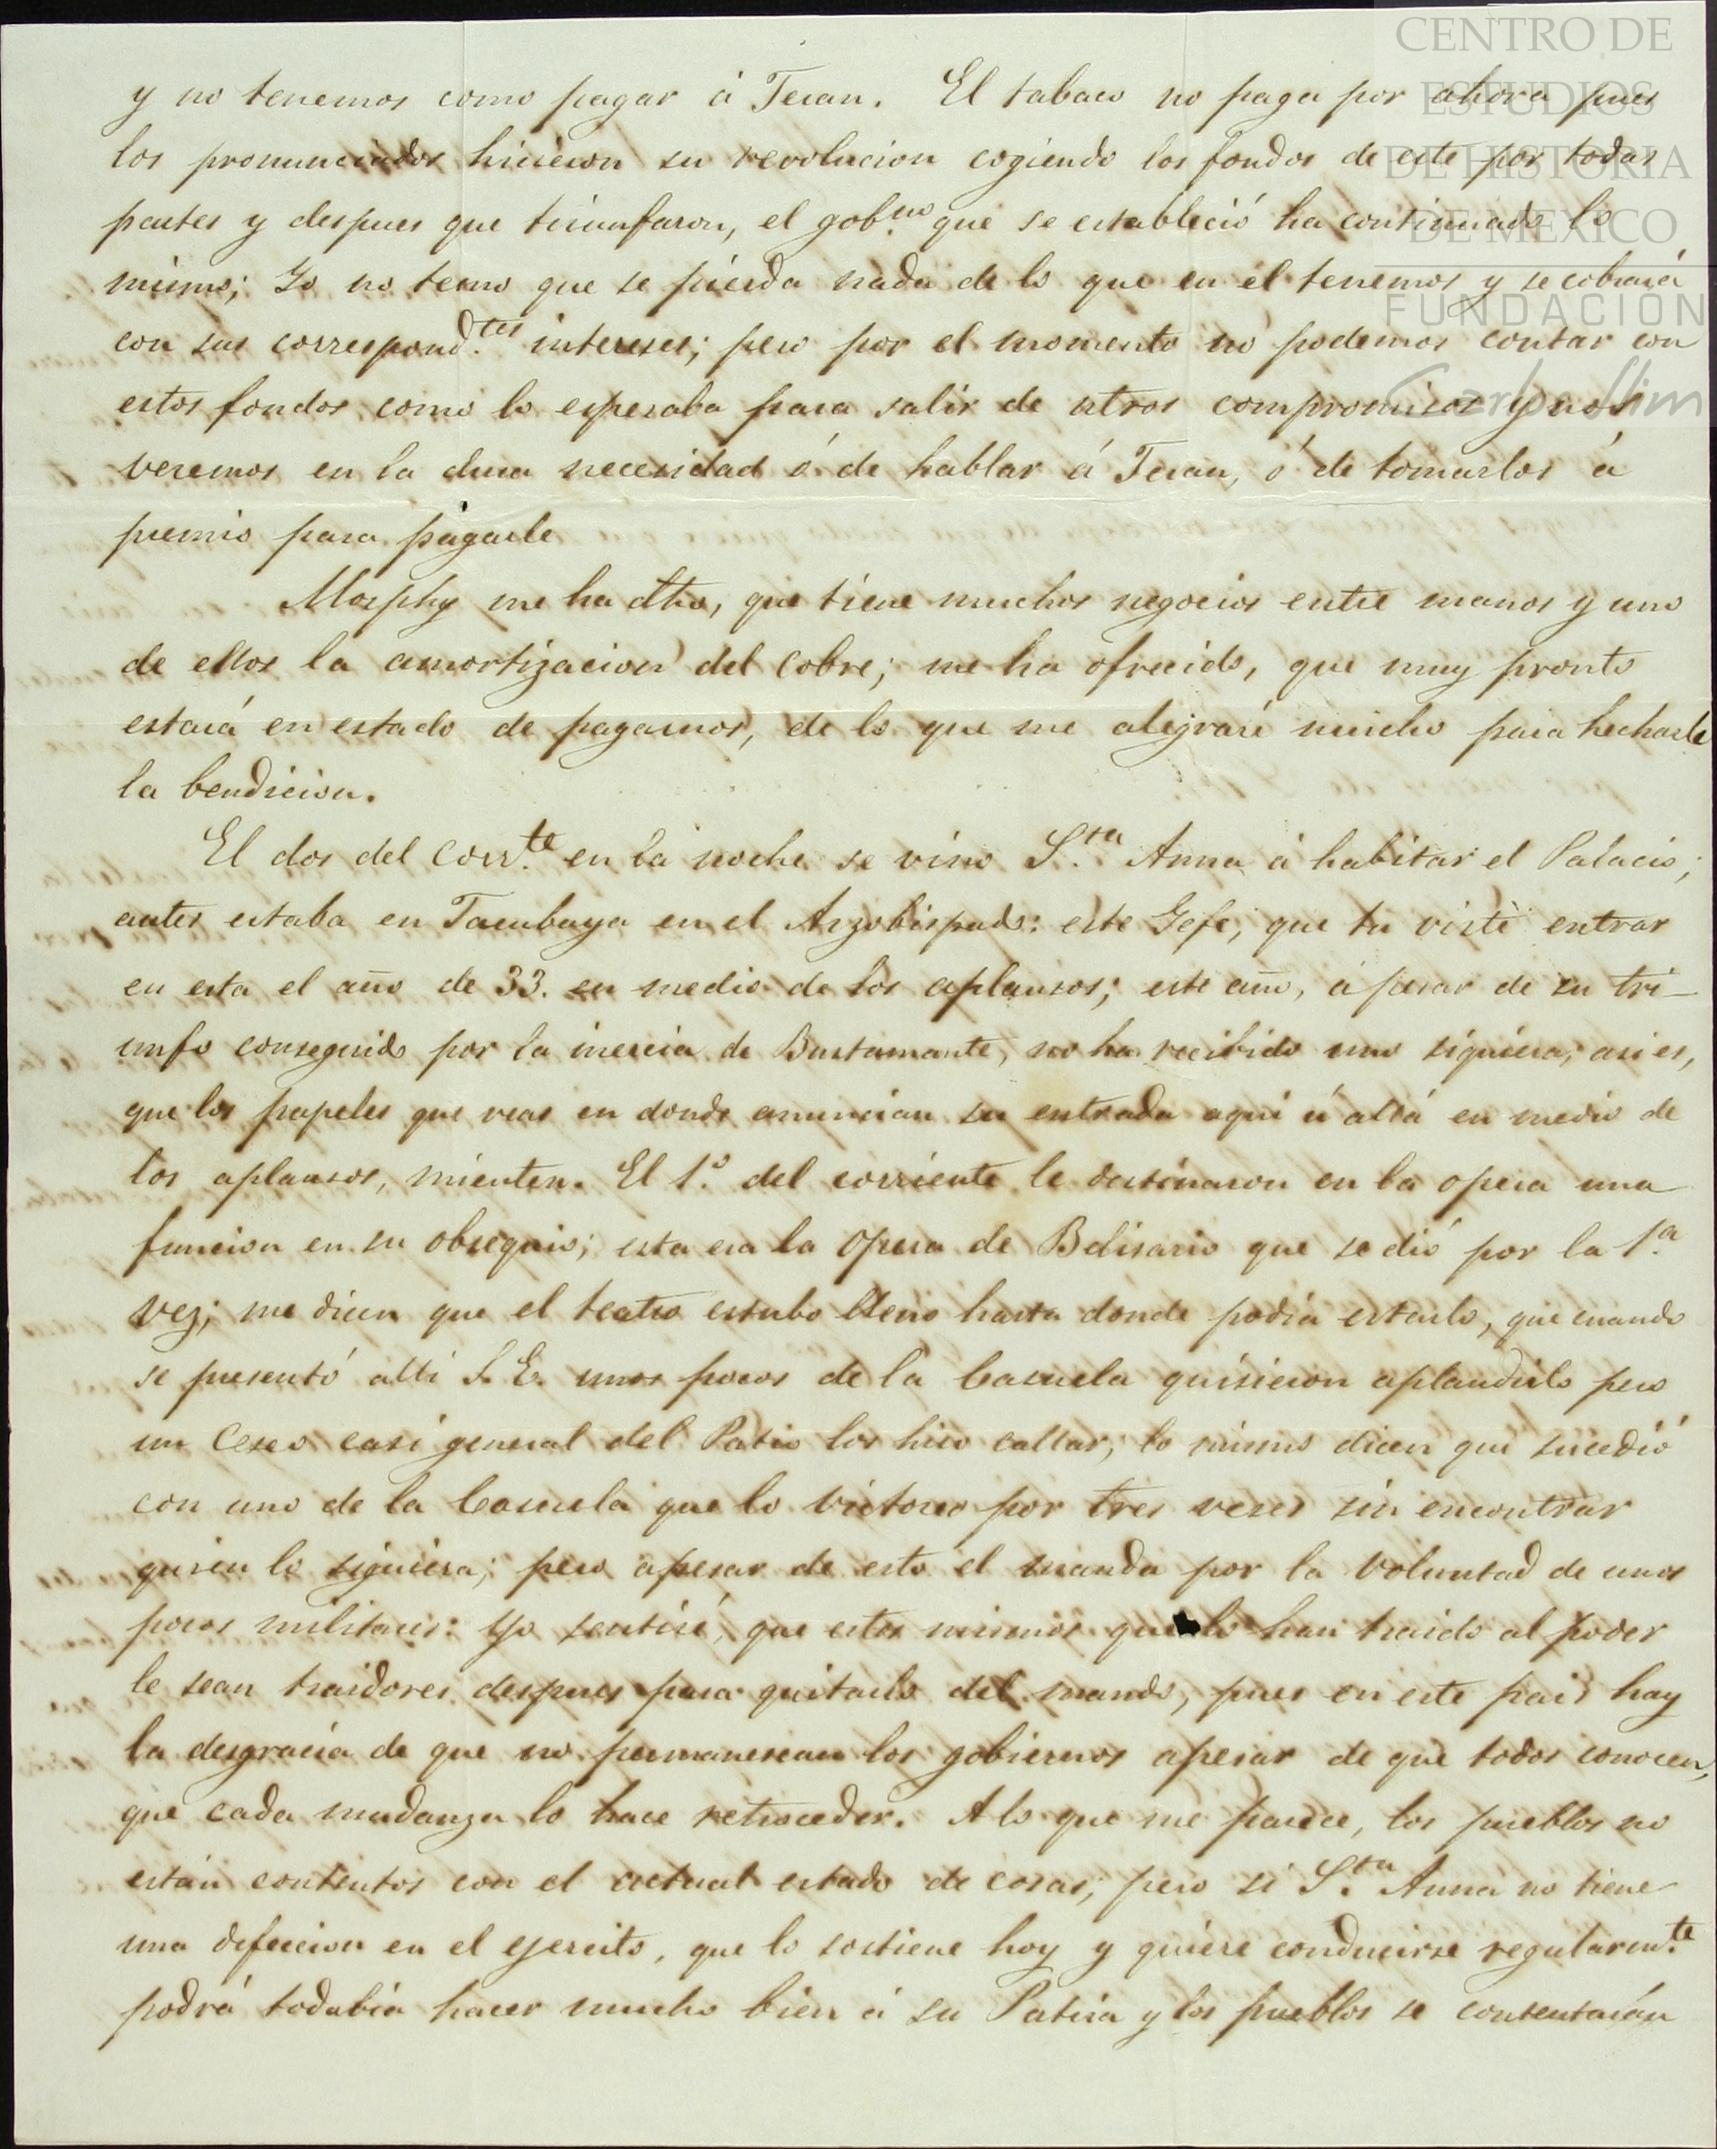 CENTRO DE
ESTUDIOS
DE HISTORIA
DE MÉXICO
FUNDACIÓN
Carlos Slim
y no tenemos como pagar á Teran. El tabaco no paga por ahora pues
los pronunciados hicieron su revolucion cogiendo los fondos de este por todas
partes y despues que triunfaron, el gob.no que se estableció ha continuado lo
mismo; Yo no temo que se pierda nada de lo que en él tenemos y se cobrará
con sus correspond.tes intereses; pero por el momento no podemos contar con
estos fondos como lo esperaba para salir de otros compromisos y nos
veremos en la dura necesidad ó de hablar á Teran, ó de tomarlos á
premio para pagarle
Morphy me ha dho, que tiene muchos negocios entre manos y uno
de ellos la amortizacion del cobre; me ha ofrecido, que muy pronto
estará en estado de pagarnos, de lo que me alegraré mucho para hecharle
la bendicion.
El dos del corr.te en la noche se vino S.ta Anna á habitar el Palacio;
antes estaba en Tacubaya en el Arzobispado: este Gefe, que tu viste entrar
en esta el año de 33. en medio de los aplausos; este año, á pesar de su tri-
unfo conseguido por la inercia de Bustamante, no ha recibido uno siquiera; asi es,
que los papeles que veas en donde anuncian su entrada aqui ú allá en medio de
los aplausos, mienten. El 1.º del corriente le destinaron en la opera una
funcion en su obsequio; esta era la Opera de Belisario que se dió por la 1.a
vez; me dicen que el teatro estubo lleno hasta donde podia estarlo, que cuando
se presentó alli S. E. unos pocos de la Casuela quisieron aplaudirlo pero
un Ceseo casi general del Patio los hiso callar; lo mismo dicen que sucedió
con uno de la Casuela que lo victoreo por tres veses sin encontrar
quien lo siguiera; pero apesar de esto el manda por la voluntad de unos
pocos militares: Yo sentiré, que estos mismos que lo han traido al poder
le sean traidores despues para quitarlo del mando, pues en este pais hay
la desgracia de que no permanescan los gobiernos apesar de que todos conocen,
que cada mudanza lo hace retroceder. A lo que me parece, los pueblos no
están contentos con el actual estado de cosas; pero si S.ta Anna no tiene
una defeccion en el ejercito, que lo sostiene hoy y quiere conducirse regularm.te
podrá todabia hacer mucho bien á su Patria y los pueblos se contentarán